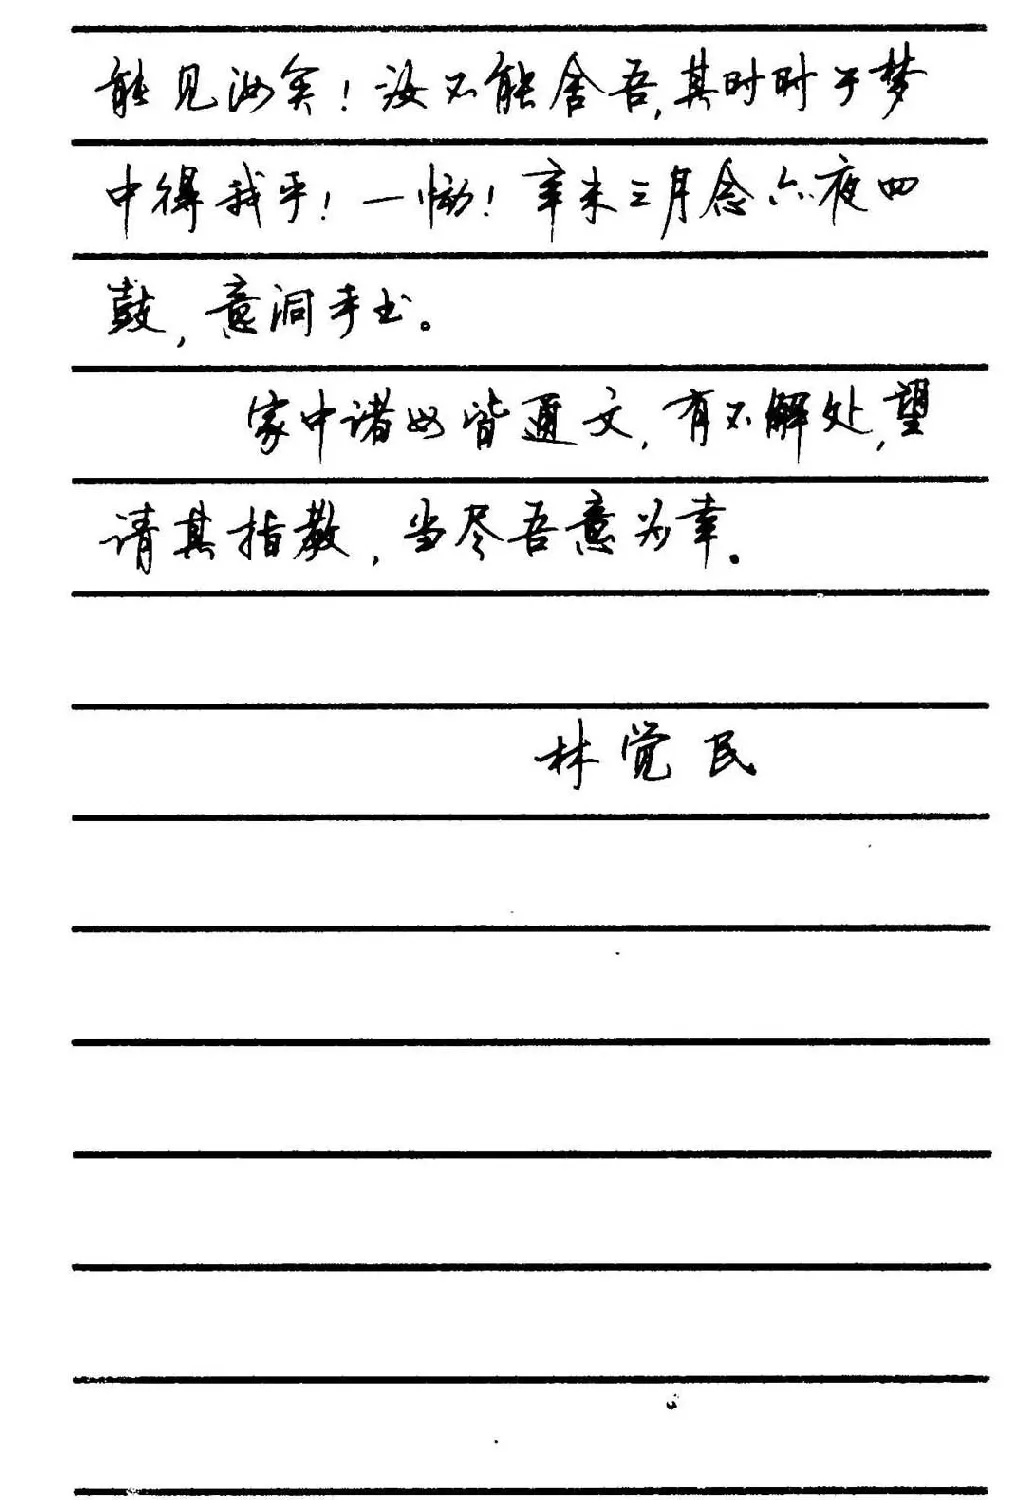 能见汝矣！汝不能舍吾，其时时于梦
中得我乎！一恸！辛未三月念六夜四
鼓，意洞手书。
家中诸母皆通文，有不解处，望
请其指教，当尽吾意为幸。
林觉民